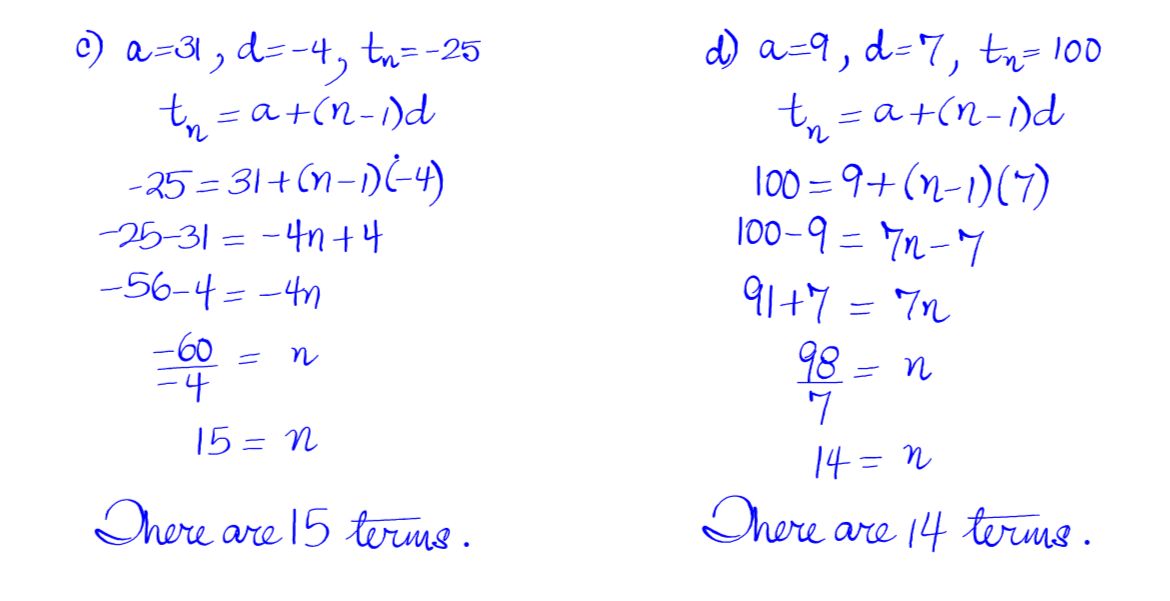 c) a=31, d=-4, tn=-25
tn = a+(n-1)d
-25=31+(n-1)(-4)
-25-31 = -4n+4
-56-4 = -4n
-60/-4 = n
15 = n
There are 15 terms.
d) a=9, d=7, tn=100
tn = a+(n-1)d
100=9+(n-1)(7)
100-9 = 7n-7
91+7 = 7n
98/7 = n
14 = n
There are 14 terms.